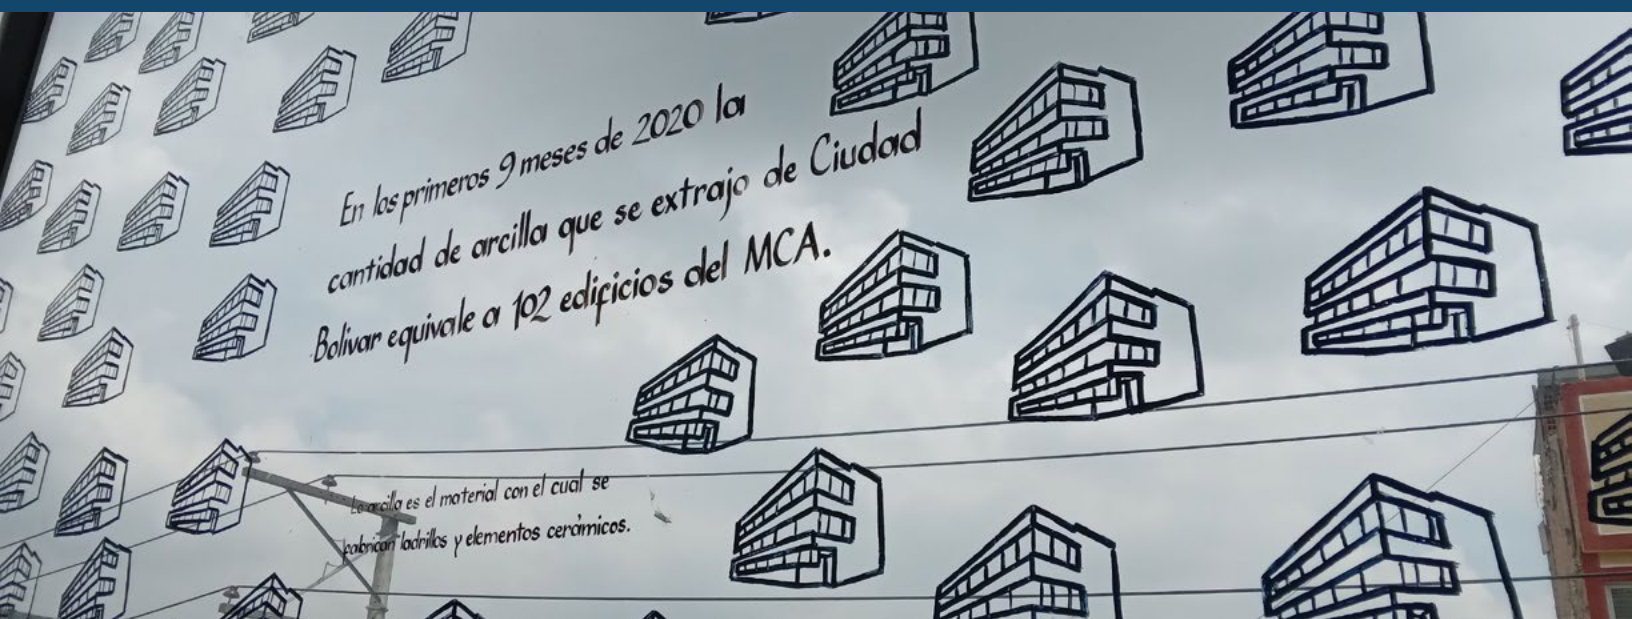 En los primeros 9 meses de 2020 la
cantidad de arcilla que se extrajo de Ciudad
Bolivar equivale a 102 edificios del MCA.
La arcilla es el material con el cual se
fabrican ladrillos y elementos cerámicos.